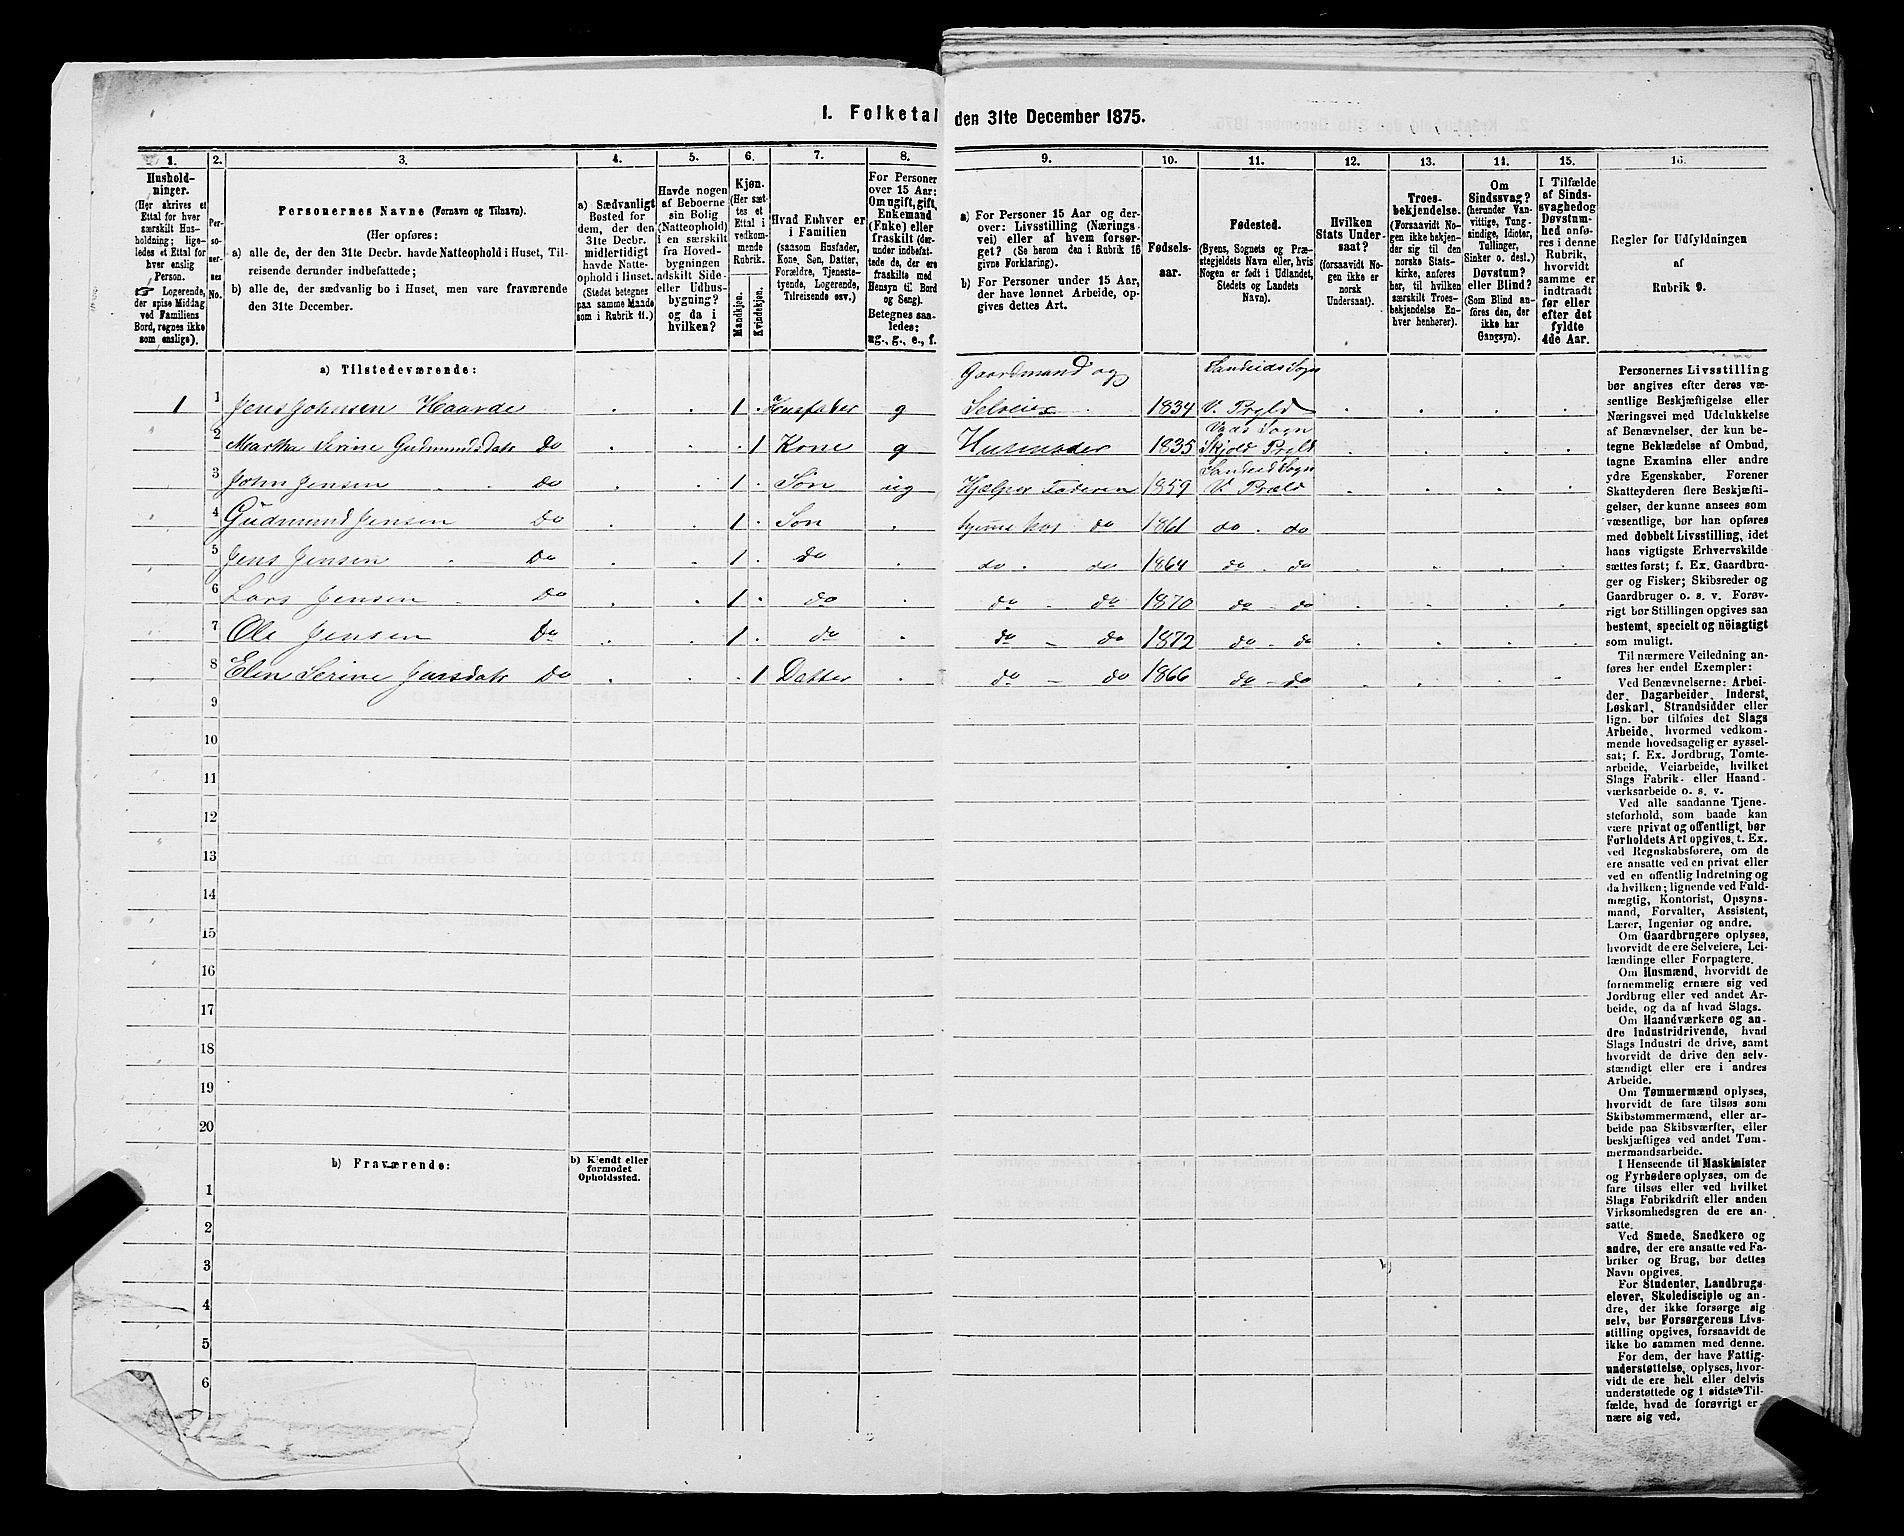 I. Folketal den 31te December 1875.
1. 2. 3. 4. 5. 6. 7. 8. 9. 10. 11. 12. 13. 14. 15. 16.
Hushold-
ninger.
(Her skrives et
Ettal for hver
særskilt Hus-
holdning; lige-
ledes et Ettal for
hver enslig
Person.
☞ Logerende,
der spise Middag
ved Familiens
Bord, regnes ikke
som enslige).
Per-
so-
ner-
nes
No.
Personernes Navne (Fornavn og Tilnavn).
(Her opføres:
a) alle de, der den 31te Decbr. havde Natteophold i Huset, Til-
reisende derunder indbefattede;
b) alle de, der sædvanlig bo i Huset, men vare fraværende
den 31te December.
a) Sædvanligt
Bosted for
dem, der den
31te Decbr.
midlertidigt
havde Natte-
ophold i Huset.
(Stedet betegnes
paa samme Maade
som i Rubrik 11.)
Havde nogen
af Beboerne
sin Bolig
(Natteophold)
i en særskilt
fra Hoved-
bygningen
adskilt Side-
eller Udhus-
bygning?
og da i
hvilken?
Kjøn.
(Her sæt-
tes et
Ettal i
vedkom-
mende
Rubrik.
Mandkjøn.
Kvindekjøn.
Hvad Enhver er
i Familien
(saasom Husfader,
Kone, Søn, Datter,
Forældre, Tjeneste-
tyende, Logerende,
Tilreisende osv.)
For Personer
over 15 Aar:
Om ugift, gift,
Enkemand
(Enke) eller
fraskilt (der-
under indbefat-
tede de, der ere
fraskilte med
Hensyn til Bord
og Seng).
Betegnes saa-
ledes:
ug., g., e., f.
a) For Personer 15 Aar og der-
over: Livsstilling (Nærings-
vei) eller af hvem forsør-
get? (Se herom den i Rubrik 16
givne Forklaring).
b) For Personer under 15 Aar,
der have lønnet Arbeide, op-
gives dettes Art.
Fødsels-
aar.
Fødested.
(Byens, Sognets og Præ-
stegjeldets Navn eller, hvis
Nogen er født i Udlandet,
Stedets og Landets
Navn).
Hvilken
Stats Under-
saat?
(forsaavidt No-
gen ikke er
norsk
Undersaat).
Troes-
bekjendelse.
(Forsaavidt No-
gen ikke bekjen-
der sig til den
norske Stats-
kirke, anføres
her, til hvilken
særskilt Troes-
bekjendelse En-
hver henhører).
Om
Sindssvag?
(herunder Van-
vittige, Tung-
sindige, Idioter,
Tullinger,
Sinker o. desl.)
Døvstum?
eller Blind?
(Som Blind an-
føres den, der
ikke har
Gangsyn).
I Tilfælde
af Sinds-
svaghed og
Døvstum-
hed anfø-
res i denne
Rubrik,
hvorvidt
samme er
indtraadt
før eller
efter det
fyldte
4de Aar.
Regler for Udfyldningen
af
Rubrik 9.
a) Tilstedeværende:
Gaardmand og Sandeids Sogn
1 1 Jens Johnsen Haarde 1 Husfader g Selveier 1834 V. Prgld
Vads Sogn
2 Martha Serine Gudmundsdatr Do 1 Kone g Husmoder 1835 Skjold Prgld
Sandeid Sogn
3 John Jensen Do 1 Søn ug Hjelper Faderen 1859 V. Prgld
4 Gudmund Jensen Do 1 Søn hjemme hos do 1861 do - do
5 Jens Jensen Do 1 do do - do 1864 do - do
6 Lars Jensen Do 1 do do - do 1870 do - do
7 Ole Jensen Do 1 do do - do 1872 do - do
8 Elen Serine Jensdatr Do 1 Datter do - do 1866 do - do
9
10
11
12
13
14
15
16
17
18
19
20
b) Fraværende:
b) Kjendt eller
formodet
Opholdssted.
1
2
3
4
5
6
Personernes Livsstilling
bør angives efter deres væ-
sentlige Beskjæftigelse eller
Næringsvei med Udelukkelse
af Benævnelser, der kun be-
tegne Beklædelse af Ombud,
tagne Examina eller andre
ydre Egenskaber. Forener
Skatteyderen flere Beskjæfti-
gelser, der kunne ansees som
væsentlige, bør han opføres
med dobbelt Livsstilling, idet
hans vigtigste Erhvervskilde
sættes først; f. Ex. Gaardbru-
ger og Fisker; Skibsreder og
Gaardbruger o. s. v. Forøv-
rigt bør Stillingen opgives saa
bestemt, specielt og nöiagtigt
som muligt.
Til nærmere Veiledning an-
føres her endel Exempler:
Ved Benævnelserne: Arbei-
der, Dagarbeider, Inderst,
Løskarl, Strandsidder eller
lign. bør tilføies det Slags
Arbeide, hvormed vedkom-
mende hovedsagelig er syssel-
sat; f. Ex. Jordbrug, Tomte-
arbeide, Veiarbeide, hvilket
Slags Fabrik- eller Haand-
værksarbeide o. s. v.
Ved alle saadanne Tjene-
steforhold, som baade kan
være privat og offentligt, bør
Forholdets Art opgives, t. Ex.
ved Regnskabsførere, om de
ere ansatte ved en privat eller
ved en offentlig Indretning og
da hvilken; lignende ved Fuld-
mægtig, Kontorist, Opsyns-
mand, Forvalter, Assistent,
Lærer, Ingeniør og andre.
Om Gaardbrugere oplyses,
hvorvidt de ere Selveiere, Lei-
lændinge eller Forpagtere.
Om Husmænd, hvorvidt de
fornemmelig ernære sig ved
Jordbrug eller ved andet Ar-
beide, og da af hvad Slags.
Om Haandværkere og an-
dre Industridrivende, hvad
Slags Industri de drive, samt
hvorvidt de drive den selv-
stændigt eller ere i andres
Arbeide.
Om Tømmermænd oplyses,
hvorvidt de fare tilsøs som
Skibstømmermænd, eller ar-
beide paa Skibsværfter, eller
beskjæftiges ved andet Tøm-
mermandsarbeide.
I Henseende til Maskinister
og Fyrbødere oplyses, om de
fare tilsøs eller ved hvilket
Slags Fabrikdrift eller anden
Virksomhedsgren de ere an-
satte.
Ved Smede, Snedkere og
andre, der ere ansatte ved Fa-
briker og Brug, bør dettes
Navn opgives.
For Studenter, Landbrugs-
elever, Skoledisciple og an-
dre, der ikke forsørge sig
selv, bør Forsørgerens Livs-
stilling opgives, forsaavidt de
ikke bo sammen med denne.
For dem, der have Fattig-
understøttelse, oplyses, hvor-
vidt de ere helt eller delvis
understøttede og i sidste Til-
fælde, hvad de forøvrigt er-
nære sig ved.